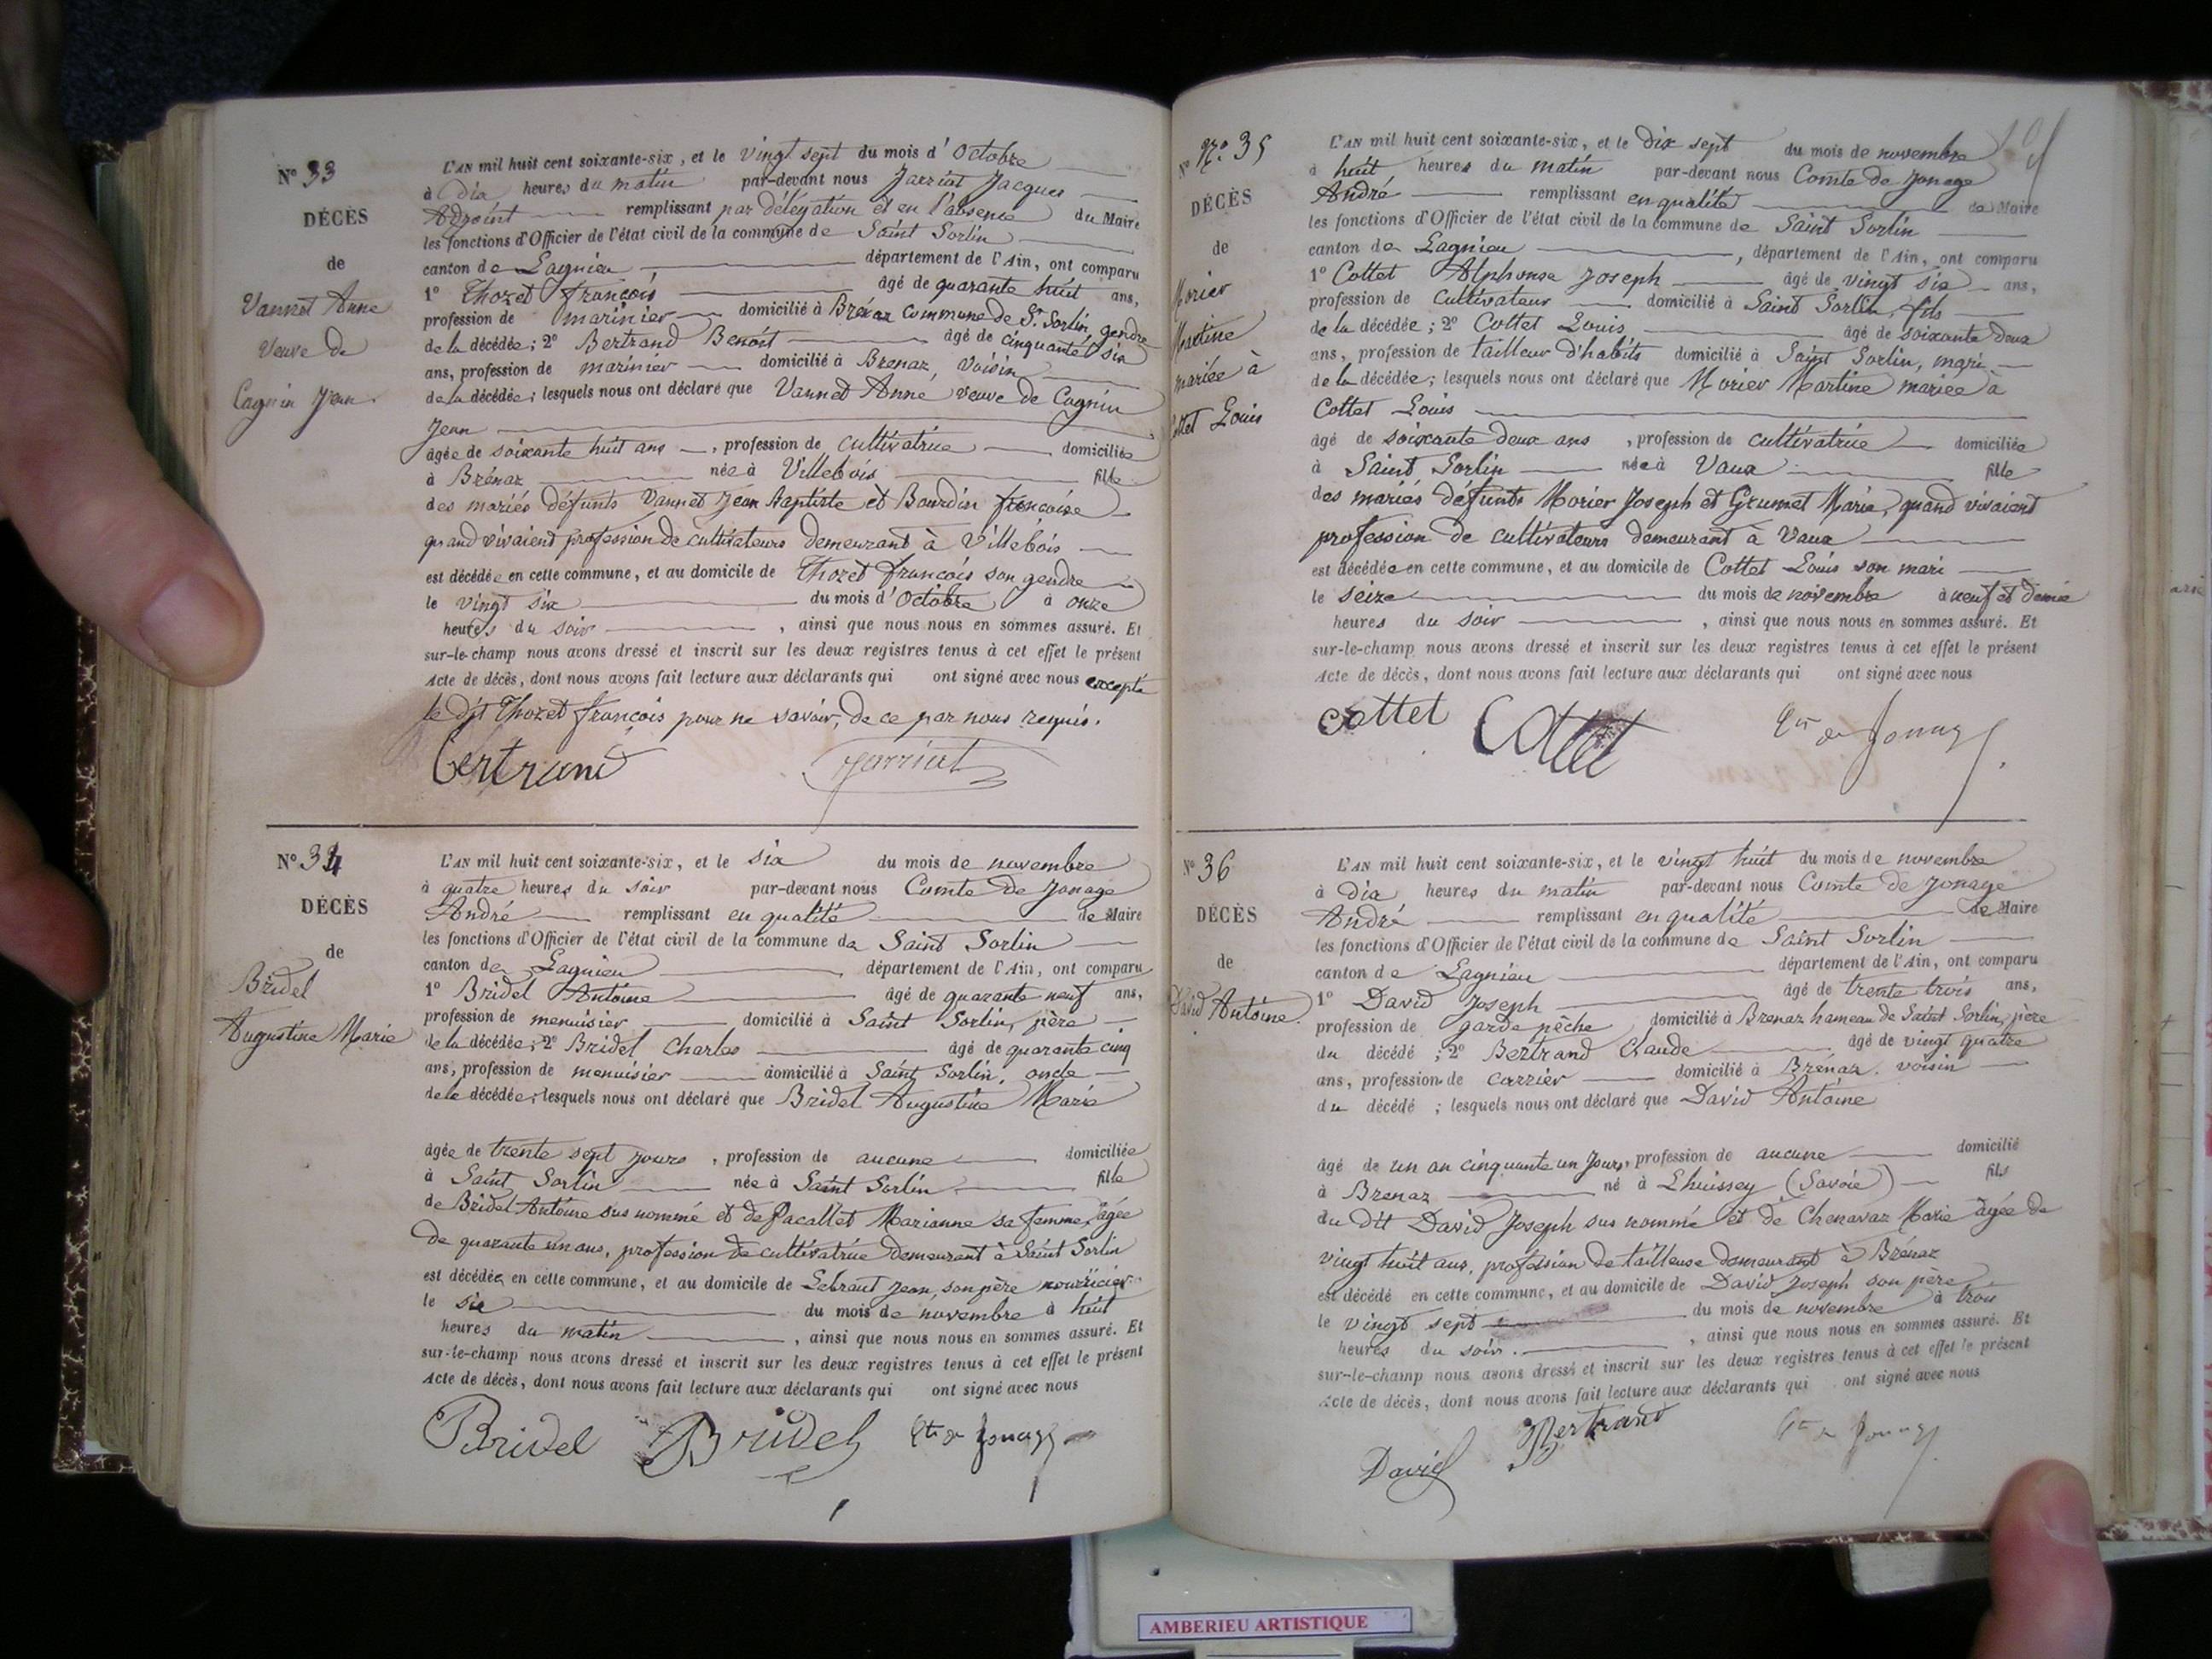 N° 33
DÉCÈS
de
Vannet Anne
Veuve de
Cagnin Jean.
L'AN mil huit cent soixante-six, et le vingt sept du mois d'Octobre
à Dix heures du matin par-devant nous Jarriat Jacques
Adjoint remplissant par délégation et en l'absence du Maire
les fonctions d'Officier de l'état civil de la commune de Saint Sorlin
canton de Lagnieu département de l'Ain, ont comparu
1° Thozet françois âgé de quarante huit ans,
profession de marinier domicilié à Brénaz Commune de St Sorlin, gendre
de la décédée; 2° Bertrand Benoît âgé de cinquante six
ans, profession de marinier domicilié à Brenaz, voisin
de la décédée; lesquels nous ont déclaré que Vannet Anne, veuve de Cagnin
Jean
âgée de soixante huit ans, profession de cultivatrice domiciliée
à Brénaz née à Villebois fille
des mariés défunts Vannet Jean Baptiste et Bourdin françoise
quand vivaient profession de cultivateurs demeurant à Villebois
est décédée en cette commune, et au domicile de Thozet françois son gendre
le vingt six du mois d'Octobre à onze
heures du soir, ainsi que nous nous en sommes assuré. Et
sur-le-champ nous avons dressé et inscrit sur les deux registres tenus à cet effet le présent
Acte de décès, dont nous avons fait lecture aux déclarants qui ont signé avec nous excepté
le dit Thozet françois pour ne savoir, de ce par nous requis.
Bertrand Jarriat
N° 34
DÉCÈS
de
Bridel
Augustine Marie
L'AN mil huit cent soixante-six, et le six du mois de novembre
à quatre heures du soir par-devant nous Comte de Jonage
André remplissant en qualité de Maire
les fonctions d'Officier de l'état civil de la commune de Saint Sorlin
canton de Lagnieu, département de l'Ain, ont comparu
1° Bridel Antoine âgé de quarante neuf ans,
profession de menuisier domicilié à Saint Sorlin, père
de la décédée; 2° Bridel Charles âgé de quarante cinq
ans, profession de menuisier domicilié à Saint Sorlin, oncle
de la décédée; lesquels nous ont déclaré que Bridel Augustine Marie
âgée de trente sept jours, profession de aucune domiciliée
à Saint Sorlin née à Saint Sorlin fille
de Bridel Antoine sus nommé et de Pacallet Marianne sa femme, âgée
de quarante un ans, profession de cultivatrice demeurant à Saint Sorlin
est décédée en cette commune, et au domicile de Lebrant Jean, son père nourricier
le six du mois de novembre à huit
heures du matin, ainsi que nous nous en sommes assuré. Et
sur-le-champ nous avons dressé et inscrit sur les deux registres tenus à cet effet le présent
Acte de décès, dont nous avons fait lecture aux déclarants qui ont signé avec nous
Bridel Bridel Cte de Jonage
N° N° 35
DÉCÈS
de
Morier
Martine
mariée à
Cottet Louis
L'AN mil huit cent soixante-six, et le dix sept du mois de novembre
à huit heures du matin par-devant nous Comte de Jonage
André remplissant en qualité de Maire
les fonctions d'Officier de l'état civil de la commune de Saint Sorlin
canton de Lagnieu, département de l'Ain, ont comparu
1° Cottet Alphonse Joseph âgé de vingt six ans,
profession de cultivateur domicilié à Saint Sorlin, fils
de la décédée; 2° Cottet Louis âgé de soixante deux
ans, profession de tailleur d'habits domicilié à Saint Sorlin, mari
de la décédée; lesquels nous ont déclaré que Morier Martine mariée à
Cottet Louis
âgé de soixante deux ans, profession de cultivatrice domiciliée
à Saint Sorlin née à Vaux fille
des mariés défunts Morier Joseph et Grumet Marie, quand vivaient
profession de cultivateurs demeurant à Vaux
est décédée en cette commune, et au domicile de Cottet Louis son mari
le seize du mois de novembre à neuf et demie
heures du soir, ainsi que nous nous en sommes assuré. Et
sur-le-champ nous avons dressé et inscrit sur les deux registres tenus à cet effet le présent
Acte de décès, dont nous avons fait lecture aux déclarants qui ont signé avec nous
Cottet Cottet Cte de Jonage
N° 36
DÉCÈS
de
David Antoine.
L'AN mil huit cent soixante-six, et le vingt huit du mois de novembre
à Dix heures du matin par-devant nous Comte de Jonage
André remplissant en qualité de Maire
les fonctions d'Officier de l'état civil de la commune de Saint Sorlin
canton de Lagnieu département de l'Ain, ont comparu
1° David Joseph âgé de trente trois ans,
profession de garde pêche domicilié à Brenaz hameau de Saint Sorlin, père
du décédé; 2° Bertrand Claude âgé de vingt quatre
ans, profession de carrier domicilié à Brénaz, voisin
du décédé; lesquels nous ont déclaré que David Antoine
âgé de un an cinquante un jours, profession de aucune domicilié
à Brenaz né à Lhuissey (Savoie) fils
du dit David Joseph sus nommé et de Chenavaz Marie âgée de
vingt huit ans, profession de tailleuse demeurant à Brénaz
est décédé en cette commune, et au domicile de David Joseph son père
le vingt sept du mois de novembre à trois
heures du soir, ainsi que nous nous en sommes assuré. Et
sur-le-champ nous avons dressé et inscrit sur les deux registres tenus à cet effet le présent
Acte de décès, dont nous avons fait lecture aux déclarants qui ont signé avec nous
David Bertrand Cte de Jonage
AMBERIEU ARTISTIQUE